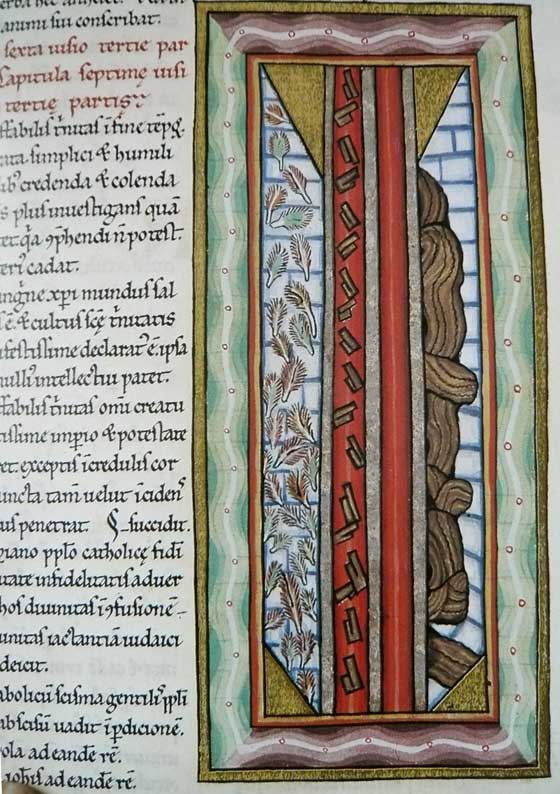 animi sui conscribat.
sexta uisio tertie par
Capitula septime uisi
tertie partis
ffabilis t̄nitas ī fine tēpꝝ
rata simplici & humili
credenda & colenda
s plus inuestigans quā
et q̄a ꝯphendi n̄ potest.
cadat.
xp̄i mundus sal
ē. & cultus scę̄ t̄nitatis
ifestissime declarat' ē. ipsa
nulli' intellectui patet.
ffabilis t̄nitas omī creatu
tissime imp̄io & potestate
et. exceptis īcredulis cor
uncta tam̄ uelut īcidens
us penetrat. succidit.
piano pplo catholicę fidī
utate infidelitatis aduer
hos diuinitas ī ꝯfusione
unitas iactantiā iudaici
deicit.
abolicū scisma gentilis ppli
abscisū uadit ī pdicionē.
ola ad eandē rē.
iohis ad eandē rē.